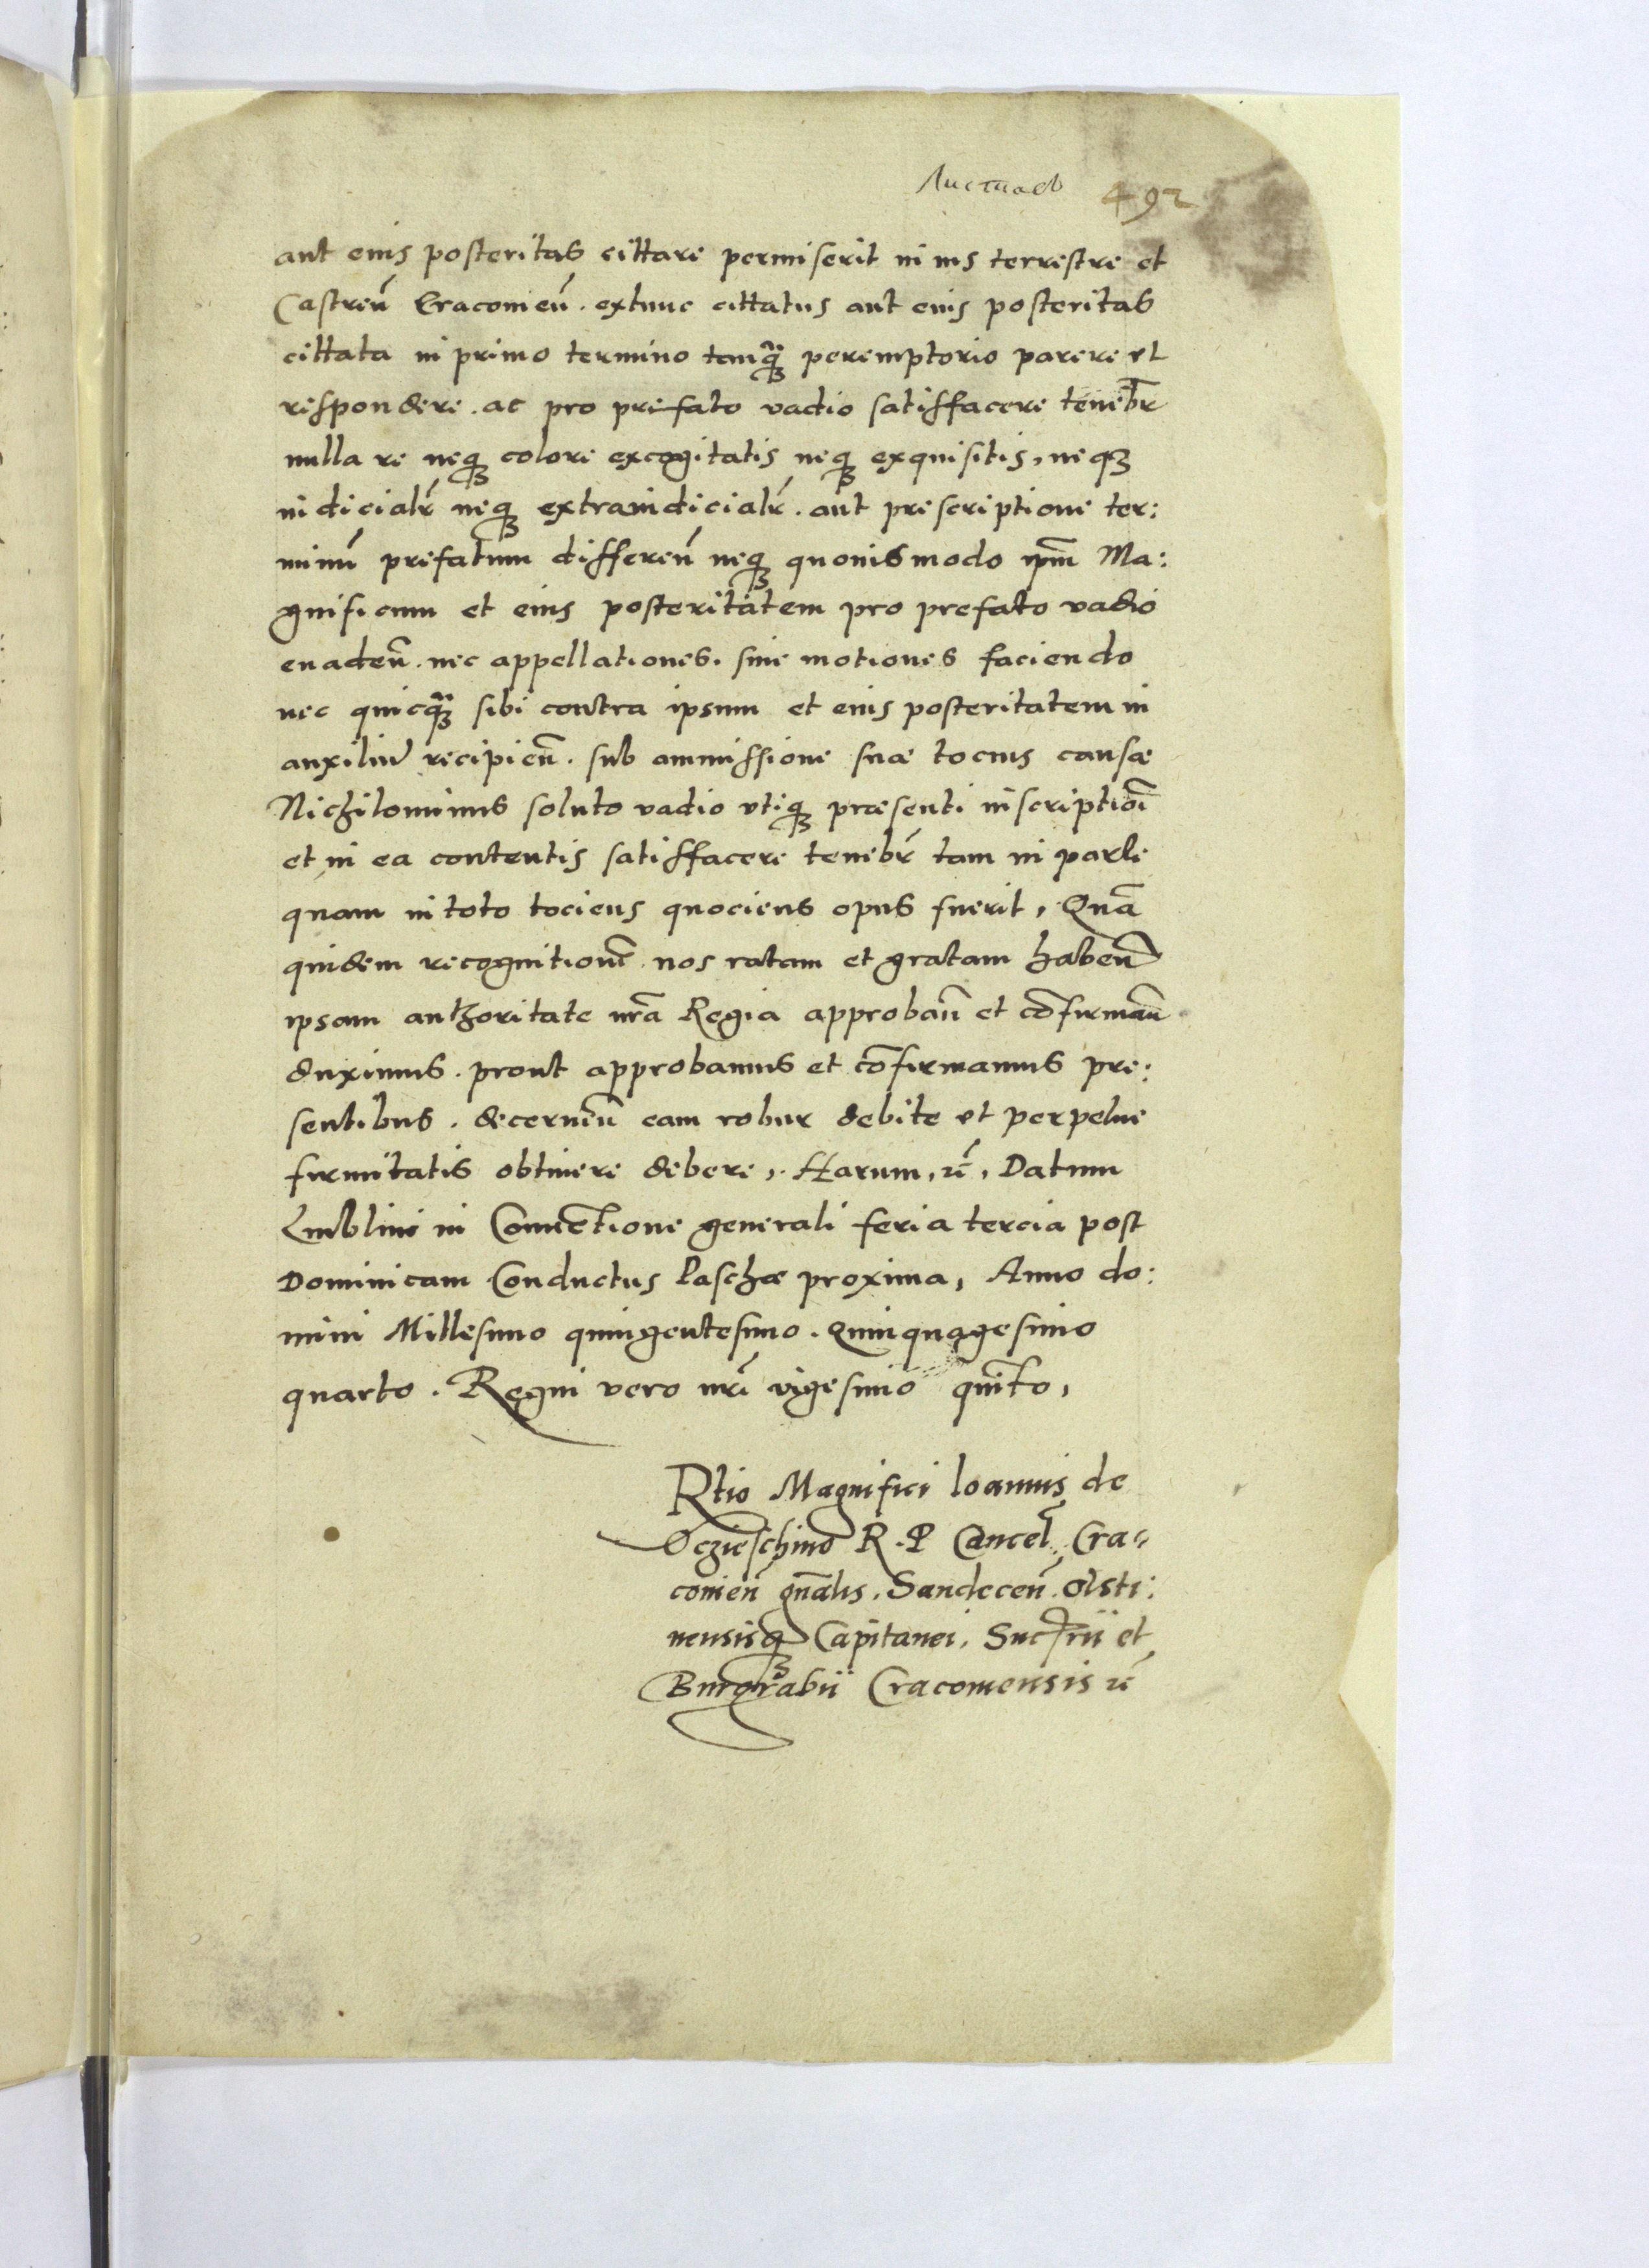 Листаєв 492
aut eius posteritas cittare permiserit in ius terrestre et
Castreñ Cracovieñ. extunc cittatus aut eius posteritas
cittata in primo termino tamq̃ꝫ peremptorio parere et
respondere. ac pro prefato vadio satisfacere tenebr̃
nulla re neqꝫ colore excogitatis neqꝫ exquisitis, neqꝫ
iudicialr̃ neqꝫ extraiudicialr̃. aut prescriptione ter:
minũ prefatum differeñ neqꝫ quouismodo ip̃m Ma:
gnificum et eius posteritatem pro prefato vadio
euadeñ. nec appellationes. siue motiones faciendo
nec quicq̃ꝫ sibi contra ipsum et eius posteritatem in
auxiliũ recipieñ. sub ammissione suæ tocius causæ
Nichilominus soluto vadio vtiqꝫ præsenti inscriptiõi
et in ea contentis satisfacere tenebr̃ tam in parte
quam in toto tociens quociens opus fuerit, Quã
quidem recognitionẽ nos ratam et gratam habeñ
ipsam authoritate nr̃a Regia approbañ et cõfirmañ
duximus. prout approbamus et cõfirmamus pre:
sentibus. decerneñ eam robur debite et perpetue
firmitatis obtinere debere,. Harum, ꝛc̃, Datum
Lublini in Conuẽtione generali feria tercia post
Dominicam Conductus Paschæ proxima, Anno do:
mini Millesimo quingentesimo. Quinquagesimo
quarto. Regni vero nr̃i vigesimo quinto,
Rtio Magnifici Ioannis de
Oczieschino R. P Cancel̃. Cra-
couieñ gñalis. Sandeceñ. Olsti:
nensisqꝫ Capitanei, Succ̃rii et
Burgrabii Cracouiensis ꝛc̃